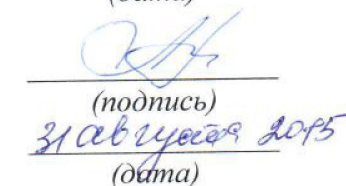 (дата)
(подпись)
31 августа 2015
(дата)